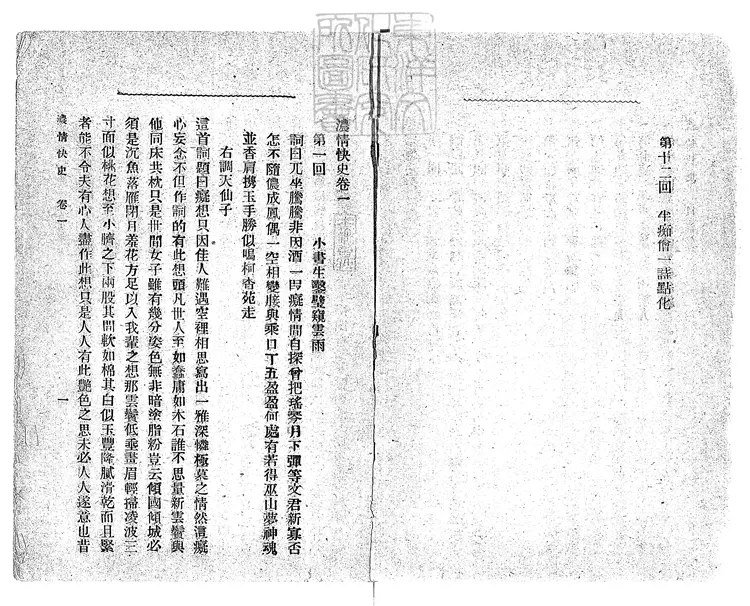 第十二回 半痴僧一詩點化
濃情快史卷一
第一回 小書生鑿壁窺雲雨
詞曰兀坐騰騰非因酒一段癡情閒自探曾把瑤琴月下彈等文君新寡否
怎不隨儂成鳳偶一空相變
與乘口丁五盈盈何處有若得巫山夢神魂
並香肩携玉手勝似鳴柯杏苑走
右調天仙子
這首詞題曰癡想只因佳人難遇空裡相思寫出一雅深憐極莫之情然這癡
心妄念不但作詞的有此想頭凡世人至如蠢庸如木石誰不思量新雲鬢與
他同床共枕只是世間女子雖有幾分姿色無非暗塗脂粉豈云傾國傾城必
須是沉魚落雁閉月羞花方足以入我輩之想那雲鬢低垂畫眉輕掃凌波三
寸面似桃花想至小臍之下兩股其間軟如棉其白似玉豐隆膩滑乾而且緊
者能不令夫有心人盡作此想只是人人有此艷色之思未必人人遂意也昔
濃情快史 卷一 一
東洋文化研究所圖書